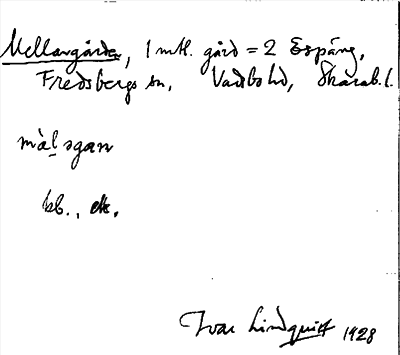 Mellangården, 1 mtl. gård = 2 Espäng,
Fredsbergs sn, Vadsbo hd, Skarab. l.
màl sgan
kb., etc.
Ivar Lindquist 1928